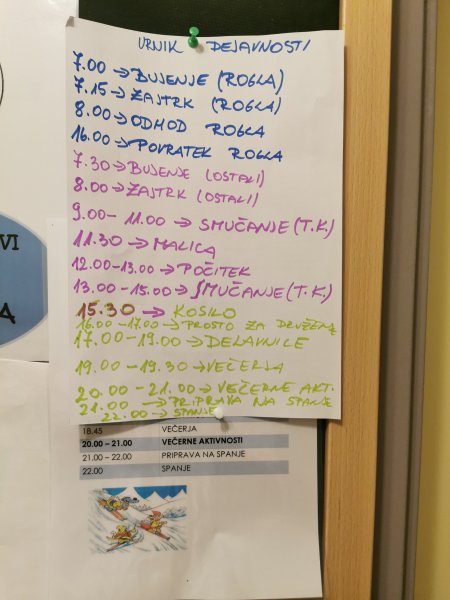 URNIK DEJAVNOSTI
7.00 → BUJENJE (ROGLA)
7.15 → ZAJTRK (ROGLA)
8.00 → ODHOD ROGLA
16.00 → POVRATEK ROGLA
7.30 → BUJENJE (OSTALI)
8.00 → ZAJTRK (OSTALI)
9.00 - 11.00 → SMUČANJE (T.K.)
11.30 → MALICA
12.00 - 13.00 → POČITEK
13.00 - 15.00 → SMUČANJE (T.K.)
15.30 → KOSILO
16.00 - 17.00 → PROSTO ZA DRUŽENJE
17.00 - 19.00 → DELAVNICE
19.00 - 19.30 → VEČERJA
20.00 - 21.00 → VEČERNE AKT.
21.00 → PRIPRAVA NA SPANJE
22.00 → SPANJE
18.45 VEČERJA
20.00 – 21.00 VEČERNE AKTIVNOSTI
21.00 – 22.00 PRIPRAVA NA SPANJE
22.00 SPANJE
VI